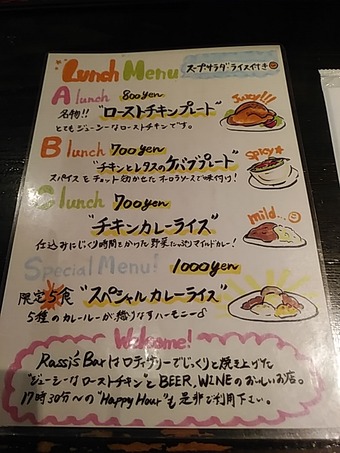 Lunch Menu スープ・サラダ・ライス付き
A lunch 800yen Juicy!!!
名物!! "ローストチキンプレート"
とてもジューシーなローストチキンです。
B lunch 700yen Spicy
"チキンとレタスのケバブプレート"
スパイスをチョット効かせたオーロラソースで味付け!
C lunch 700yen
"チキンカレーライス" mild...
仕込みにじっくり時間をかけた野菜たっぷりマイルドカレー!
Special Menu! 1000yen
限定5食 "スペシャルカレーライス"
5種のカレールーが織りなすハーモニー♪
Welcome!
Rassi's Barはロティサリーでじっくりと焼き上げた
"ジューシーなローストチキン"とBEER, WINEのおいしいお店。
17時30分〜の"Happy Hour"も是非ご利用下さい。